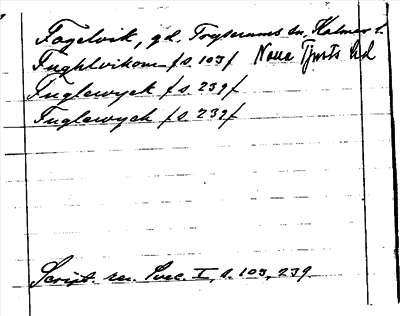 Fågelvik, gd. Tryserums sn. Kalmar l.
Fughlvikom /s. 103/ Norra Tjusts hd
Fuglewyck /s. 239/
Fuglewych /s. 232/
Script. rer. Svec. I, s. 103, 239.